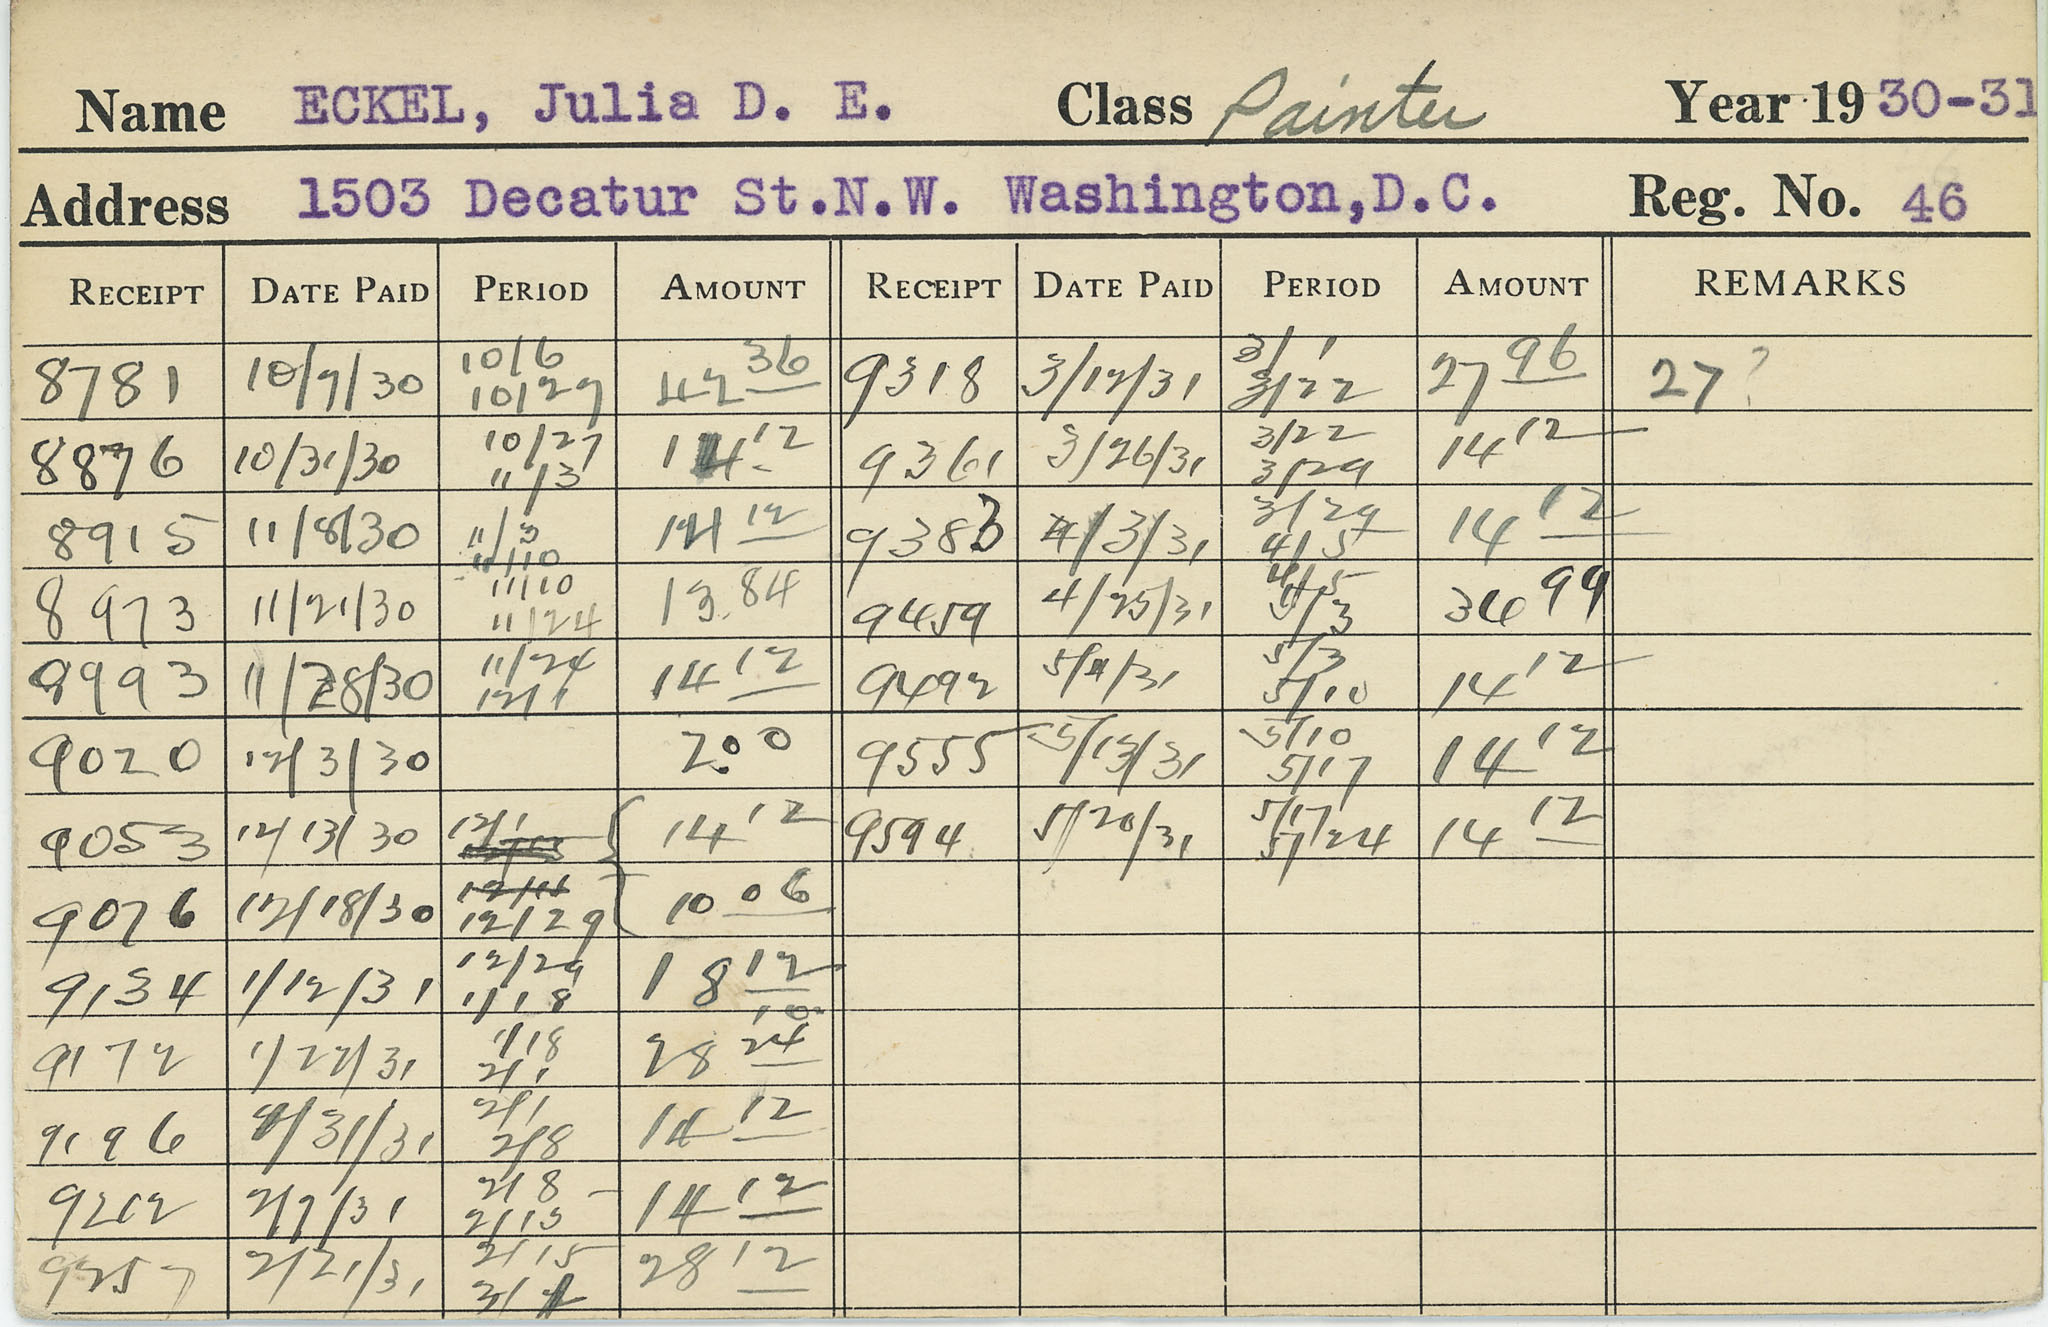 Name ECKEL, Julia D. E. Class Painter Year 1930-31
Address 1503 Decatur St.N.W. Washington,D.C. Reg. No. 46
RECEIPT DATE PAID PERIOD AMOUNT RECEIPT DATE PAID PERIOD AMOUNT REMARKS
8781 10/9/30 10/6 10/27 42 36 9318 3/12/31 3/1 3/22 27 96 27?
8876 10/31/30 10/27 11/3 14 12 9361 3/26/31 3/22 3/29 14 12
8915 11/8/30 11/3 11/10 14 12 9383 4/3/31 3/29 4/5 14 12
8973 11/21/30 11/10 11/24 13.84 9459 4/25/31 4/5 5/3 99
9993 11/28/30 11/24 12/1 14 12 9492 5/4/31 5/3 5/10 14 12
9020 12/3/30 2.00 9555 5/13/31 5/10 5/17 14 12
9053 12/13/30 12/1 14 12 9594 5/20/31 5/17 5/24 14 12
9076 12/18/30 12/29 10 06
9134 1/12/31 12/29 1/18 18 12
9172 1/22/31 1/18 2/1 28 24
9196 1/31/31 2/1 2/8 14 12
9212 2/7/31 2/8 - 2/15 14 12
9257 2/21/31 2/15 3/1 28 12